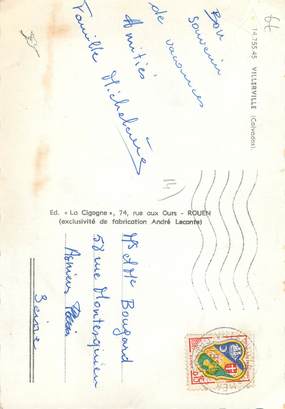 Bon
souvenir
de vacances
Amitiés
Famille
14.755.45 VILLERVILLE (Calvados).
Ed. « La Cigogne », 74, rue aux Ours - ROUEN
(exclusivité de fabrication André Leconte)
Mr et Me Bougard
58 rue
Asnières
Seine